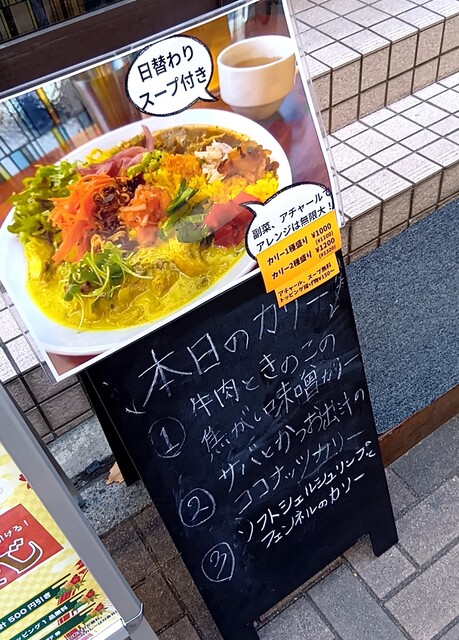 日替わり
スープ付き
副菜、アチャールで
アレンジは無限大！
カリー1種盛り ¥1000
(¥1100)
カリー2種盛り ¥1200
(¥1320)
アチャール、スープ無料
トッピング各1種¥150〜
本日のカリー
① 牛肉ときのこの
焦がし味噌カリー
② サバとかつお出汁の
ココナッツカリー
③ ソフトシェルシュリンプと
フェンネルのカリー
ける！
ビ
計500円引き
ッピング1品無料